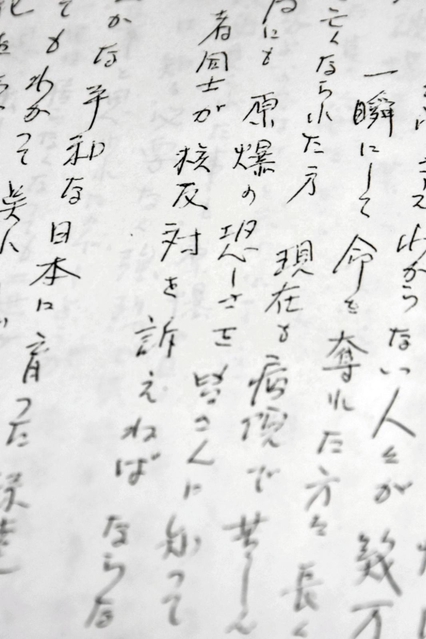 さえわからない人々が 幾万
一瞬にして 命を奪れた方々 長く
亡くなられた方 現在も病院で苦しん
にも 原爆の恐しさを皆さんに知って
者同士が 核反対を訴えねばならな
かな平和な日本に育った
ても わかって